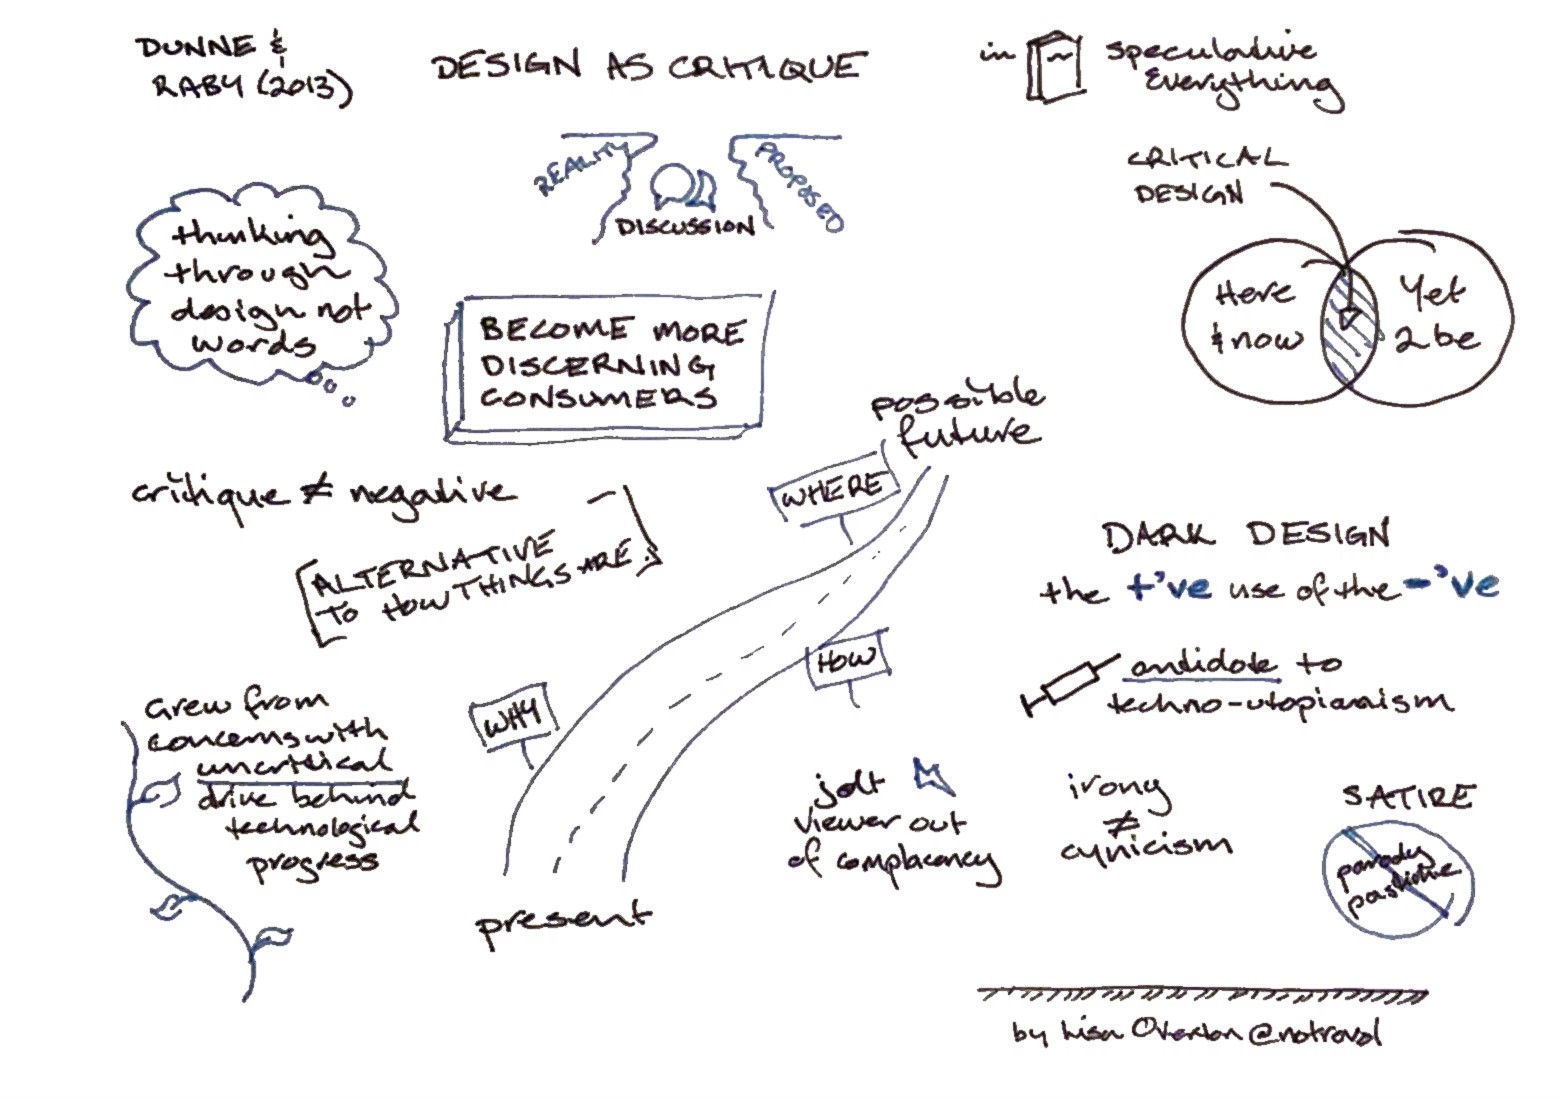 DUNNE &
RABY (2013)
DESIGN AS CRITIQUE
in
speculative
everything
REALITY
PROPOSED
DISCUSSION
CRITICAL
DESIGN
Here
& now
Yet
2 be
thinking
through
design not
words
BECOME MORE
DISCERNING
CONSUMERS
possible
future
WHERE
critique ≠ negative
ALTERNATIVE
TO HOW THINGS ARE
DARK DESIGN
the +'ve use of the -'ve
HOW
antidote to
techno-utopianism
Grew from
concerns with
uncritical
drive behind
technological
progress
WHY
present
jolt
viewer out
of complacency
irony
≠
cynicism
SATIRE
parody
pastiche
by Lisa Overton @notrovol